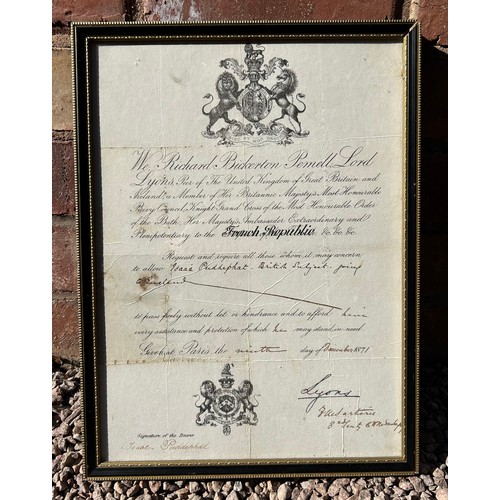 We Richard Bickerton Pemell Lord
Lyons, Peer of The United Kingdom of Great Britain and
Ireland, a Member of Her Britannic Majesty's Most Honourable
Privy Council, Knight Grand Cross of the Most Honourable Order
of the Bath, Her Majesty's Ambassador Extraordinary and
Plenipotentiary to the French Republic &c. &c. &c.
Request and require all those whom it may concern
to allow Isaac Puddephat. British Subject. going
to pass freely without let or hindrance and to afford him
every assistance and protection of which he may stand in need
Given at Paris the ninth day of December 1871
Lyons
Signature of the Bearer
Isaac Puddephat